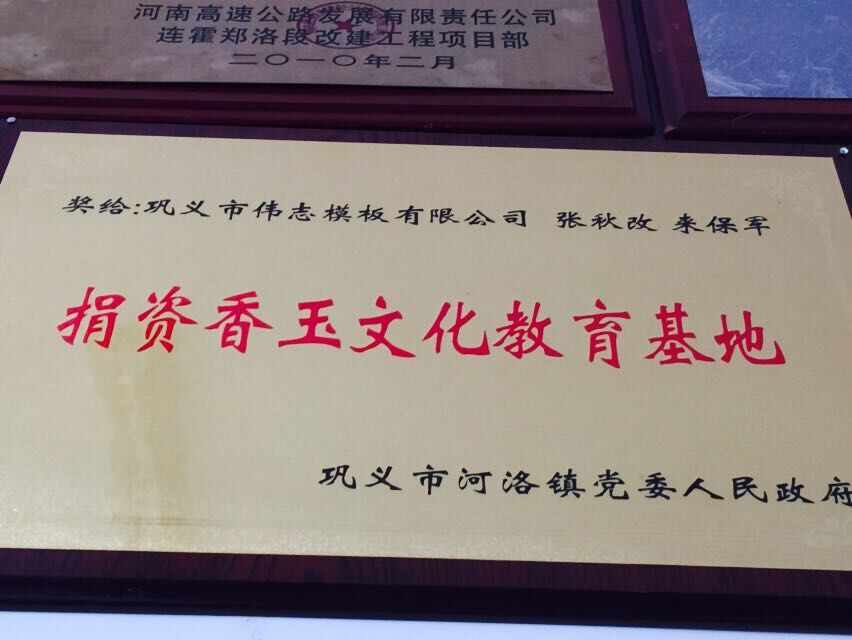 河南高速公路发展有限责任公司
连霍郑洛段改建工程项目部
二〇一〇年二月
奖给:巩义市伟志模板有限公司 张秋改 来保军
捐资香玉文化教育基地
巩义市河洛镇党委人民政府